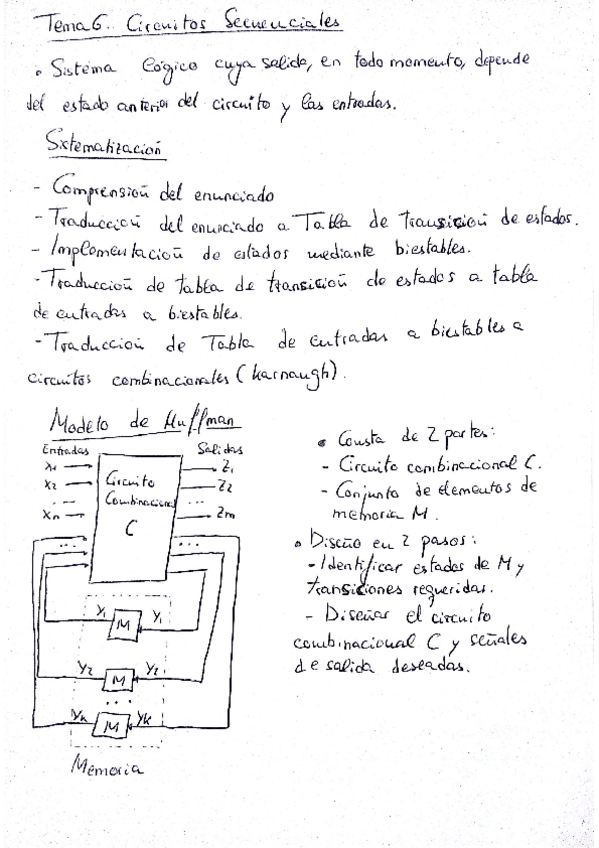 Tema 6. Circuitos Secuenciales
• Sistema lógico cuya salida, en todo momento, depende
del estado anterior del circuito y las entradas.
Sistematización
- Comprensión del enunciado
- Traducción del enunciado a Tabla de transición de estados.
- Implementación de estados mediante biestables.
- Traducción de tabla de transición de estados a tabla
de entradas a biestables.
- Traducción de Tabla de entradas a biestables a
circuitos combinacionales (karnaugh).
Modelo de Huffman
Entradas
Salidas
X1
X2
...
Xn
Circuito
Combinacional
C
Z1
Z2
...
Zm
...
...
Y1
M
Y1
Y2
M
Y2
...
Yk
M
Yk
Memoria
• Consta de 2 partes:
- Circuito combinacional C.
- Conjunto de elementos de
memoria M.
• Diseño en 2 pasos:
- Identificar estados de M y
transiciones requeridas.
- Diseñar el circuito
combinacional C y señales
de salida deseadas.